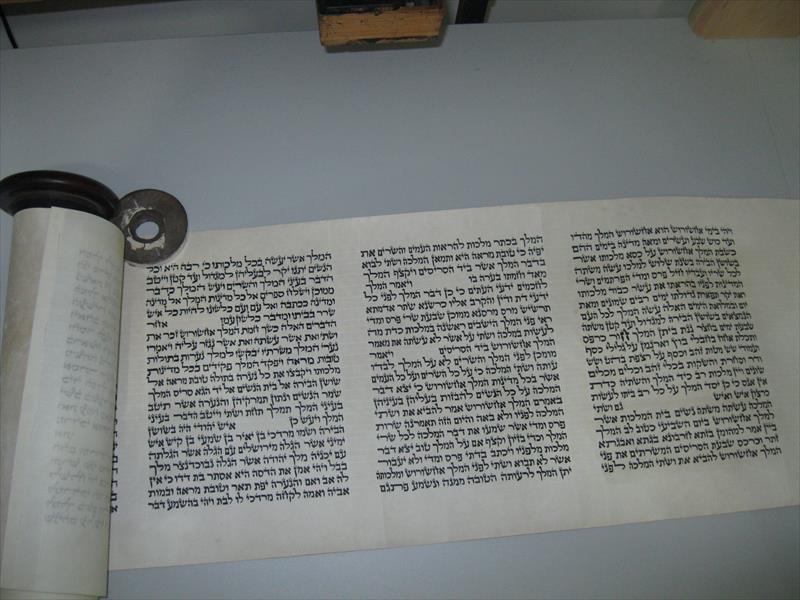 ויהי בימי אחשורוש הוא אחשורוש המלך מהדו
ועד כוש שבע ועשרים ומאה מדינה בימים ההם
כשבת המלך אחשורוש על כסא מלכותו אשר
בשושן הבירה בשנת שלוש למלכו עשה משתה
לכל שריו ועבדיו חיל פרס ומדי הפרתמים ושרי
המדינות לפניו בהראתו את עשר כבוד מלכותו
ואת יקר תפארת גדולתו ימים רבים שמונים ומאת
יום ובמלואת הימים האלה עשה המלך לכל העם
הנמצאים בשושן הבירה למגדול ועד קטן משתה
שבעת ימים בחצר גנת ביתן המלך חור כרפס
ותכלת אחוז בחבלי בוץ וארגמן על גלילי כסף
ועמודי שש מטות זהב וכסף על רצפת בהט ושש
ודר וסחרת והשקות בכלי זהב וכלים מכלים
שונים ויין מלכות רב כיד המלך והשתיה כדת
אין אנס כי כן יסד המלך על כל רב ביתו לעשות
כרצון איש ואיש
גם ושתי
המלכה עשתה משתה נשים בית המלכות אשר
למלך אחשורוש ביום השביעי כטוב לב המלך
ביין אמר למהומן בזתא חרבונא בגתא ואבגתא
זתר וכרכס שבעת הסריסים המשרתים את פני
המלך אחשורוש להביא את ושתי המלכה לפני
המלך בכתר מלכות להראות העמים והשרים את
יפיה כי טובת מראה היא ותמאן המלכה ושתי לבוא
בדבר המלך אשר ביד הסריסים ויקצף המלך
מאד וחמתו בערה בו ויאמר המלך
לחכמים ידעי העתים כי כן דבר המלך לפני כל
ידעי דת ודין והקרב אליו כרשנא שתר אדמתא
תרשיש מרס מרסנא ממוכן שבעת שרי פרס ומדי
ראי פני המלך הישבים ראשנה במלכות כדת מה
לעשות במלכה ושתי על אשר לא עשתה את מאמר
המלך אחשורוש ביד הסריסים ויאמר
מומכן לפני המלך והשרים לא על המלך לבדו
עותה ושתי המלכה כי על כל השרים ועל כל העמים
אשר בכל מדינות המלך אחשורוש כי יצא דבר
המלכה על כל הנשים להבזות בעליהן בעיניהן
באמרם המלך אחשורוש אמר להביא את ושתי
המלכה לפניו ולא באה והיום הזה תאמרנה שרות
פרס ומדי אשר שמעו את דבר המלכה לכל שרי
המלך וכדי בזיון וקצף אם על המלך טוב יצא דבר
מלכות מלפניו ויכתב בדתי פרס ומדי ולא יעבור
אשר לא תבוא ושתי לפני המלך אחשורוש ומלכותה
יתן המלך לרעותה הטובה ממנה ונשמע פתגם
המלך אשר יעשה בכל מלכותו כי רבה היא וכל
הנשים יתנו יקר לבעליהן למגדול ועד קטן וייטב
הדבר בעיני המלך והשרים ויעש המלך כדבר
ממוכן וישלח ספרים אל כל מדינות המלך אל מדינה
ומדינה ככתבה ואל עם ועם כלשונו להיות כל איש
שרר בביתו ומדבר כלשון עמו אחר
הדברים האלה כשך חמת המלך אחשורוש זכר את
ושתי ואת אשר עשתה ואת אשר נגזר עליה ויאמרו
נערי המלך משרתיו יבקשו למלך נערות בתולות
טובות מראה ויפקד המלך פקידים בכל מדינות
מלכותו ויקבצו את כל נערה בתולה טובת מראה אל
שושן הבירה אל בית הנשים אל יד הגא סריס המלך
שמר הנשים ונתון תמרקיהן והנערה אשר תיטב
בעיני המלך תמלך תחת ושתי וייטב הדבר בעיני
המלך ויעש כן איש יהודי היה בשושן
הבירה ושמו מרדכי בן יאיר בן שמעי בן קיש איש
ימיני אשר הגלה מירושלים עם הגלה אשר הגלתה
עם יכניה מלך יהודה אשר הגלה נבוכדנצר מלך
בבל ויהי אמן את הדסה היא אסתר בת דדו כי אין
לה אב ואם והנערה יפת תאר וטובת מראה ובמות
אביה ואמה לקחה מרדכי לו לבת ויהי בהשמע דבר